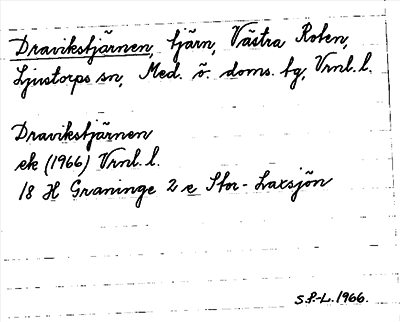 Dravikstjärnen, tjärn, Västra Roten,
Ljustorps sn, Med. ö. doms. tg, Vrnl. l.
Dravikstjärnen
ek (1966) Vrnl. l.
18 H Graninge 2 e Stor-Laxsjön
S.P.-L. 1966.